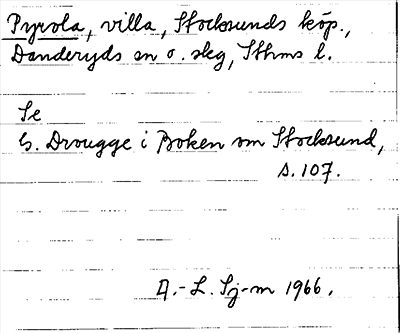 Pyrola, villa, Stocksunds köp.,
Danderyds sn o. skg, Sthms l.
Se
G. Drougge i Boken om Stocksund,
s. 107.
A.-L. Sj-m 1966.